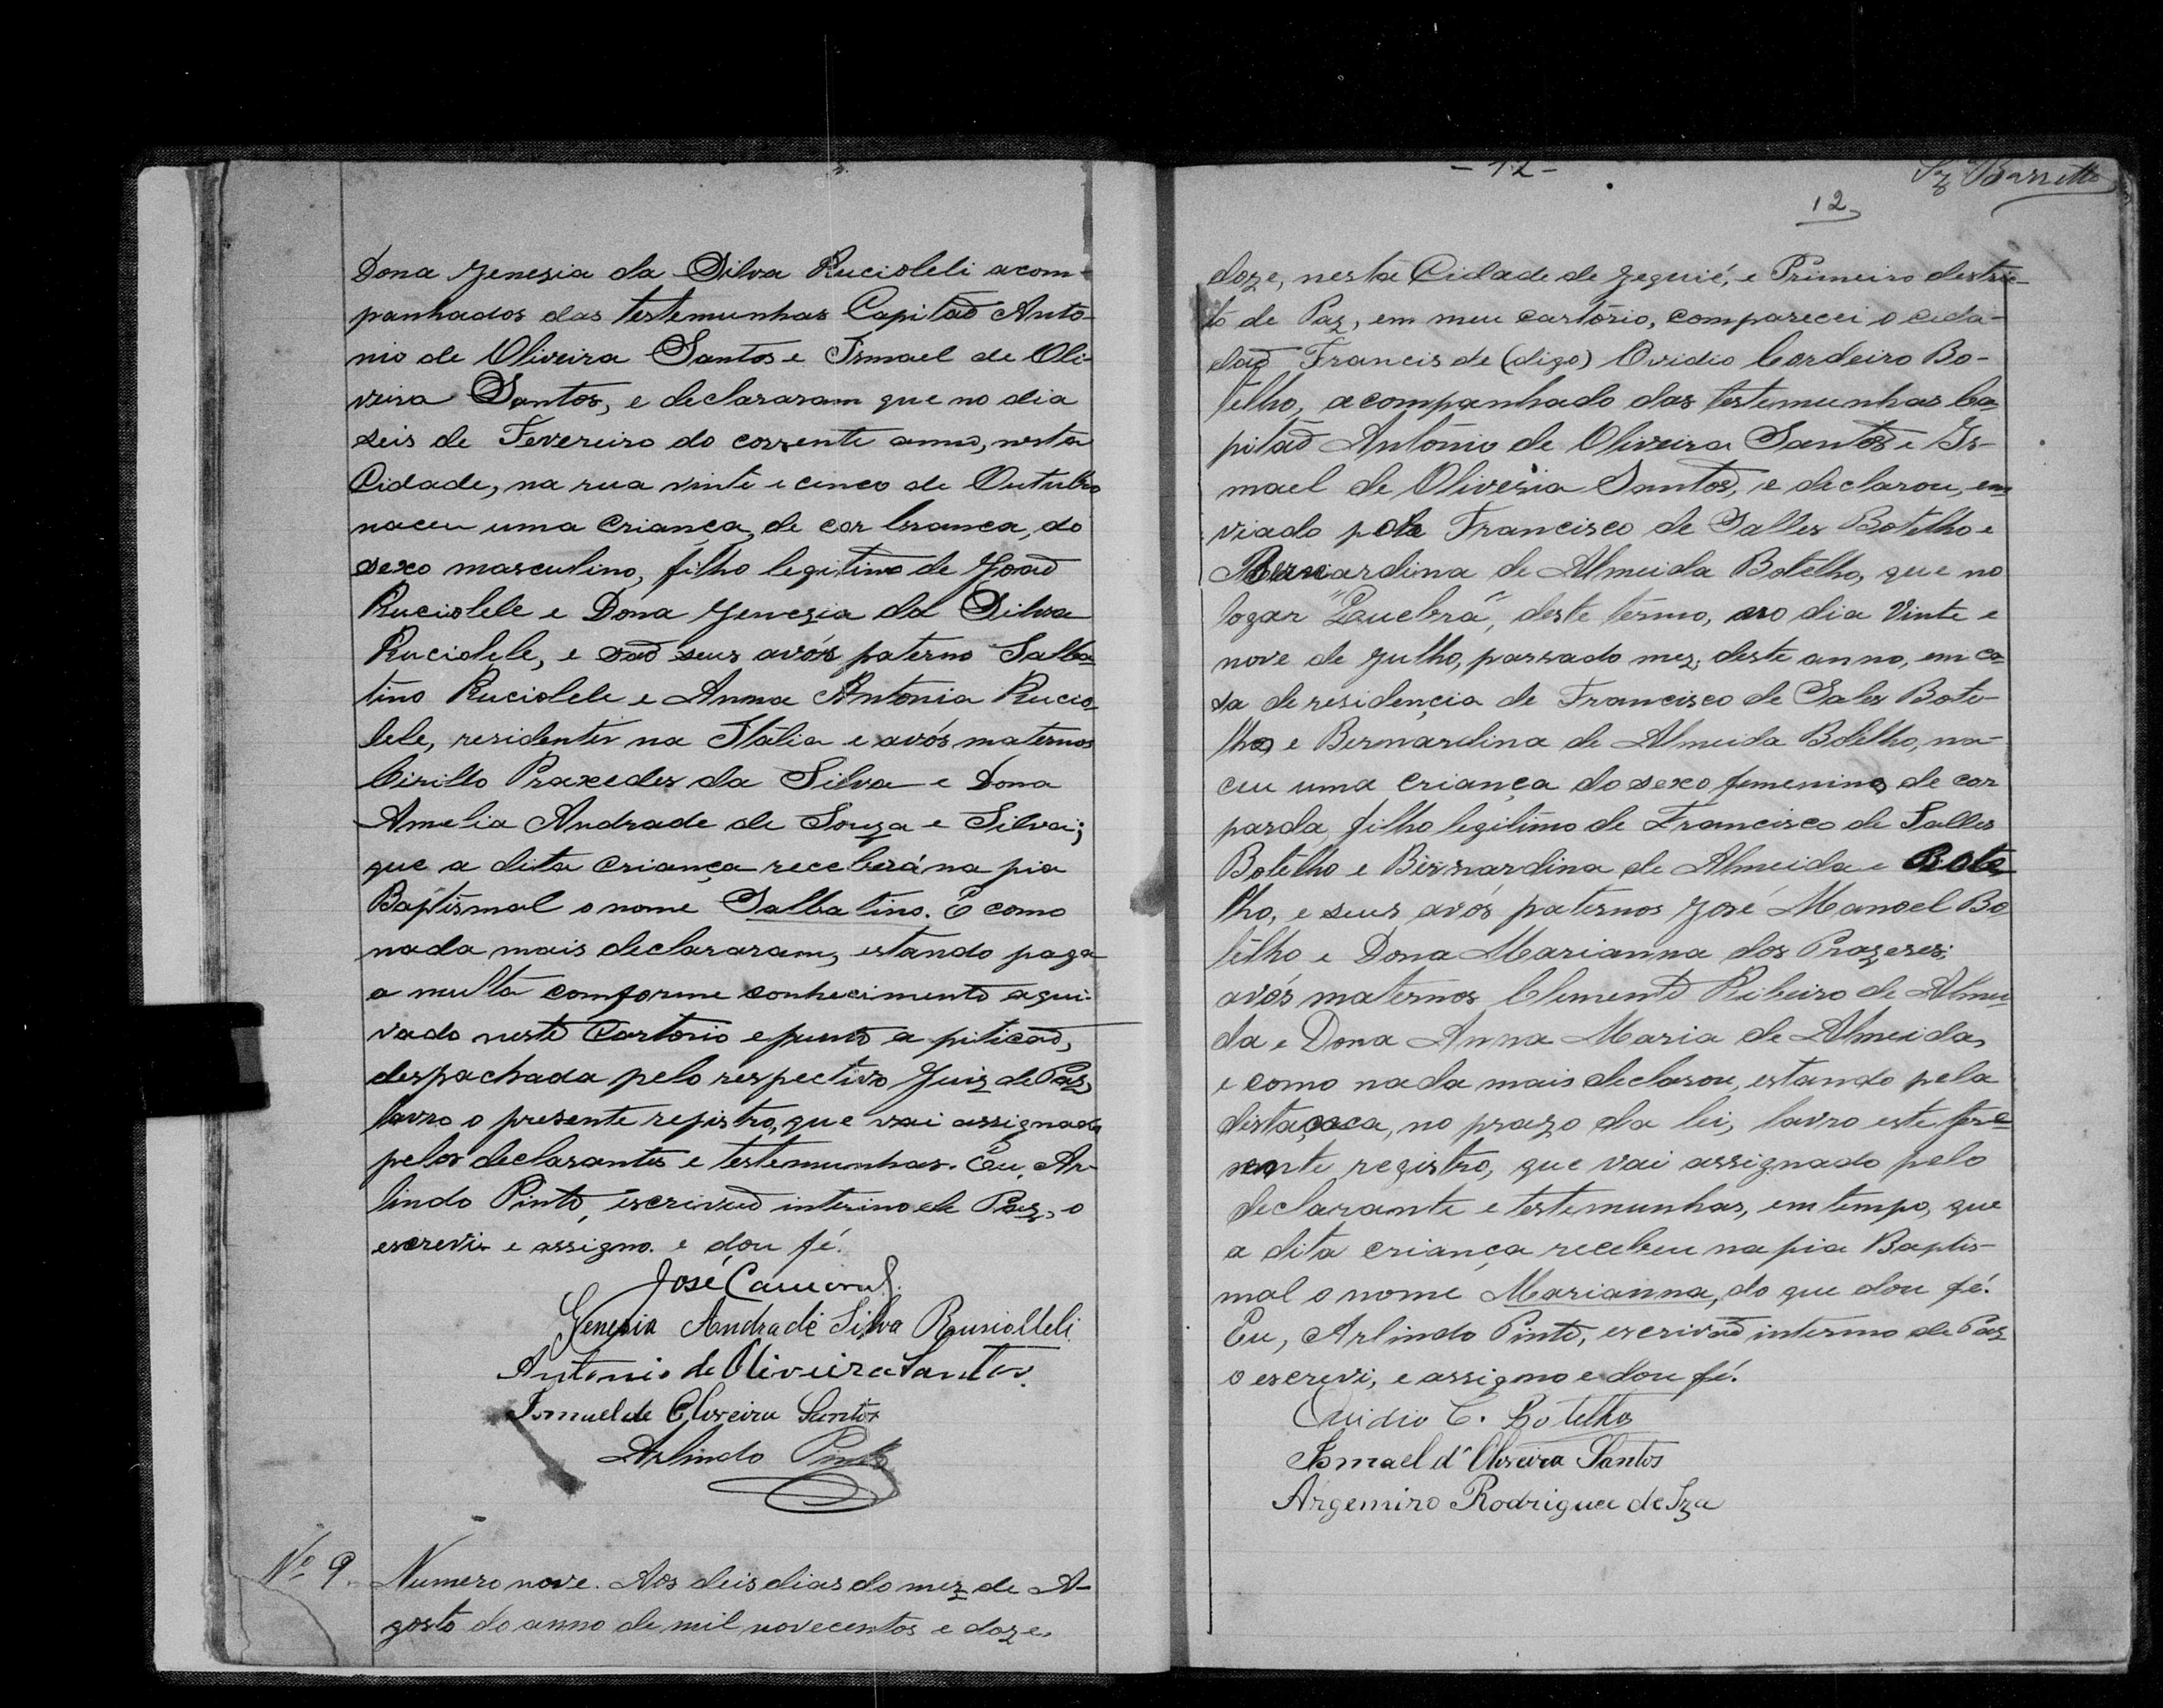 Dona Genesia da Silva Rucioleli acom-
panhados das testemunhas Capitão Anto-
nio de Oliveira Santos e Ismael de Oli-
veira Santos, e declararam que no dia
seis de Fevereiro do corrente anno, nesta
Cidade, na rua vinte e cinco de Outubro
naceu uma criança, de cor branca, do
sexo masculino, filho legitimo de João
Ruciolele e Dona Genezia da Silva
Ruciolele, e são seus avós paterno Salba
tino Ruciolele e Anna Antonia Rucio
lele, residentes na Itália e avós maternos
Cirillo Praxedes da Silva e Dona
Amelia Andrade de Souza e Silva;
que a dita criança receberá na pia
Baptismal o nome Salbatino. E como
nada mais declararam, estando paga
a multa comforme conhecimento aqui-
vado neste Cartorio e junto a pitição,
despachada pelo respectivo Juiz de Paz,
lavro o presente registro, que vai assignado
pelos declarantes e testemunhas. Eu, Ar-
lindo Pinto, escrivão interino de Paz, o
escrevi e assigno. e dou fé.
José
Genesia Andrade Silva Rusiolleli
Antonio de Oliveira Santos.
Ismael de Oliveira Santos
Arlindo Pinto
Nº 9. Numero nove. Aos deis dias do mez de A-
gosto do anno de mil novecentos e doze,
- 12 -
Sz Barretto
12
doze, nesta Cidade de Jequié, e Primeiro destric-
to de Paz, em meu cartório, comparecei o cida-
dão Francis de (digo) Ovidio Cordeiro Bo-
telho, acompanhado das testemunhas Ca
pitão Antônio de Oliveira Santos e Is-
mael de Oliveira Santos, e declarou, en
viado pole Francisco de Salles Botelho e
Bernardina de Almeida Botelho, que no
logar "Quebra", deste têrmo, no dia Vinte e
nove de Julho, passado mez, deste anno, em ca-
sa de residencia de Francisco de Sales Bote-
lho e Bernardina de Almeida Botelho, na-
ceu uma criança do sexo femenino, de cor
parda, filho legitimo de Francisco de Salles
Botelho e Bernardina de Almeida e Bote
lho, e seus avós paternos José Manoel Bo
telho e Dona Marianna dos Prazeres;
avós maternos Clemente Ribeiro de Almei-
da e Dona Anna Maria de Almeida,
e como nada mais declarou, estando pela
no prazo da lei, lavro este pre-
sente registro, que vai assignado pelo
declarante e testemunhas, em tempo, que
a dita criança recebeu na pia Baptis-
mal o nome Marianna, do que dou fé.
Eu, Arlindo Pinto, escrivão interino de Paz
o escrevi, e assigno e dou fé.
Ovidio C. Botelho
Ismael d'Oliveira Santos
Argemiro Rodrigues de Sza